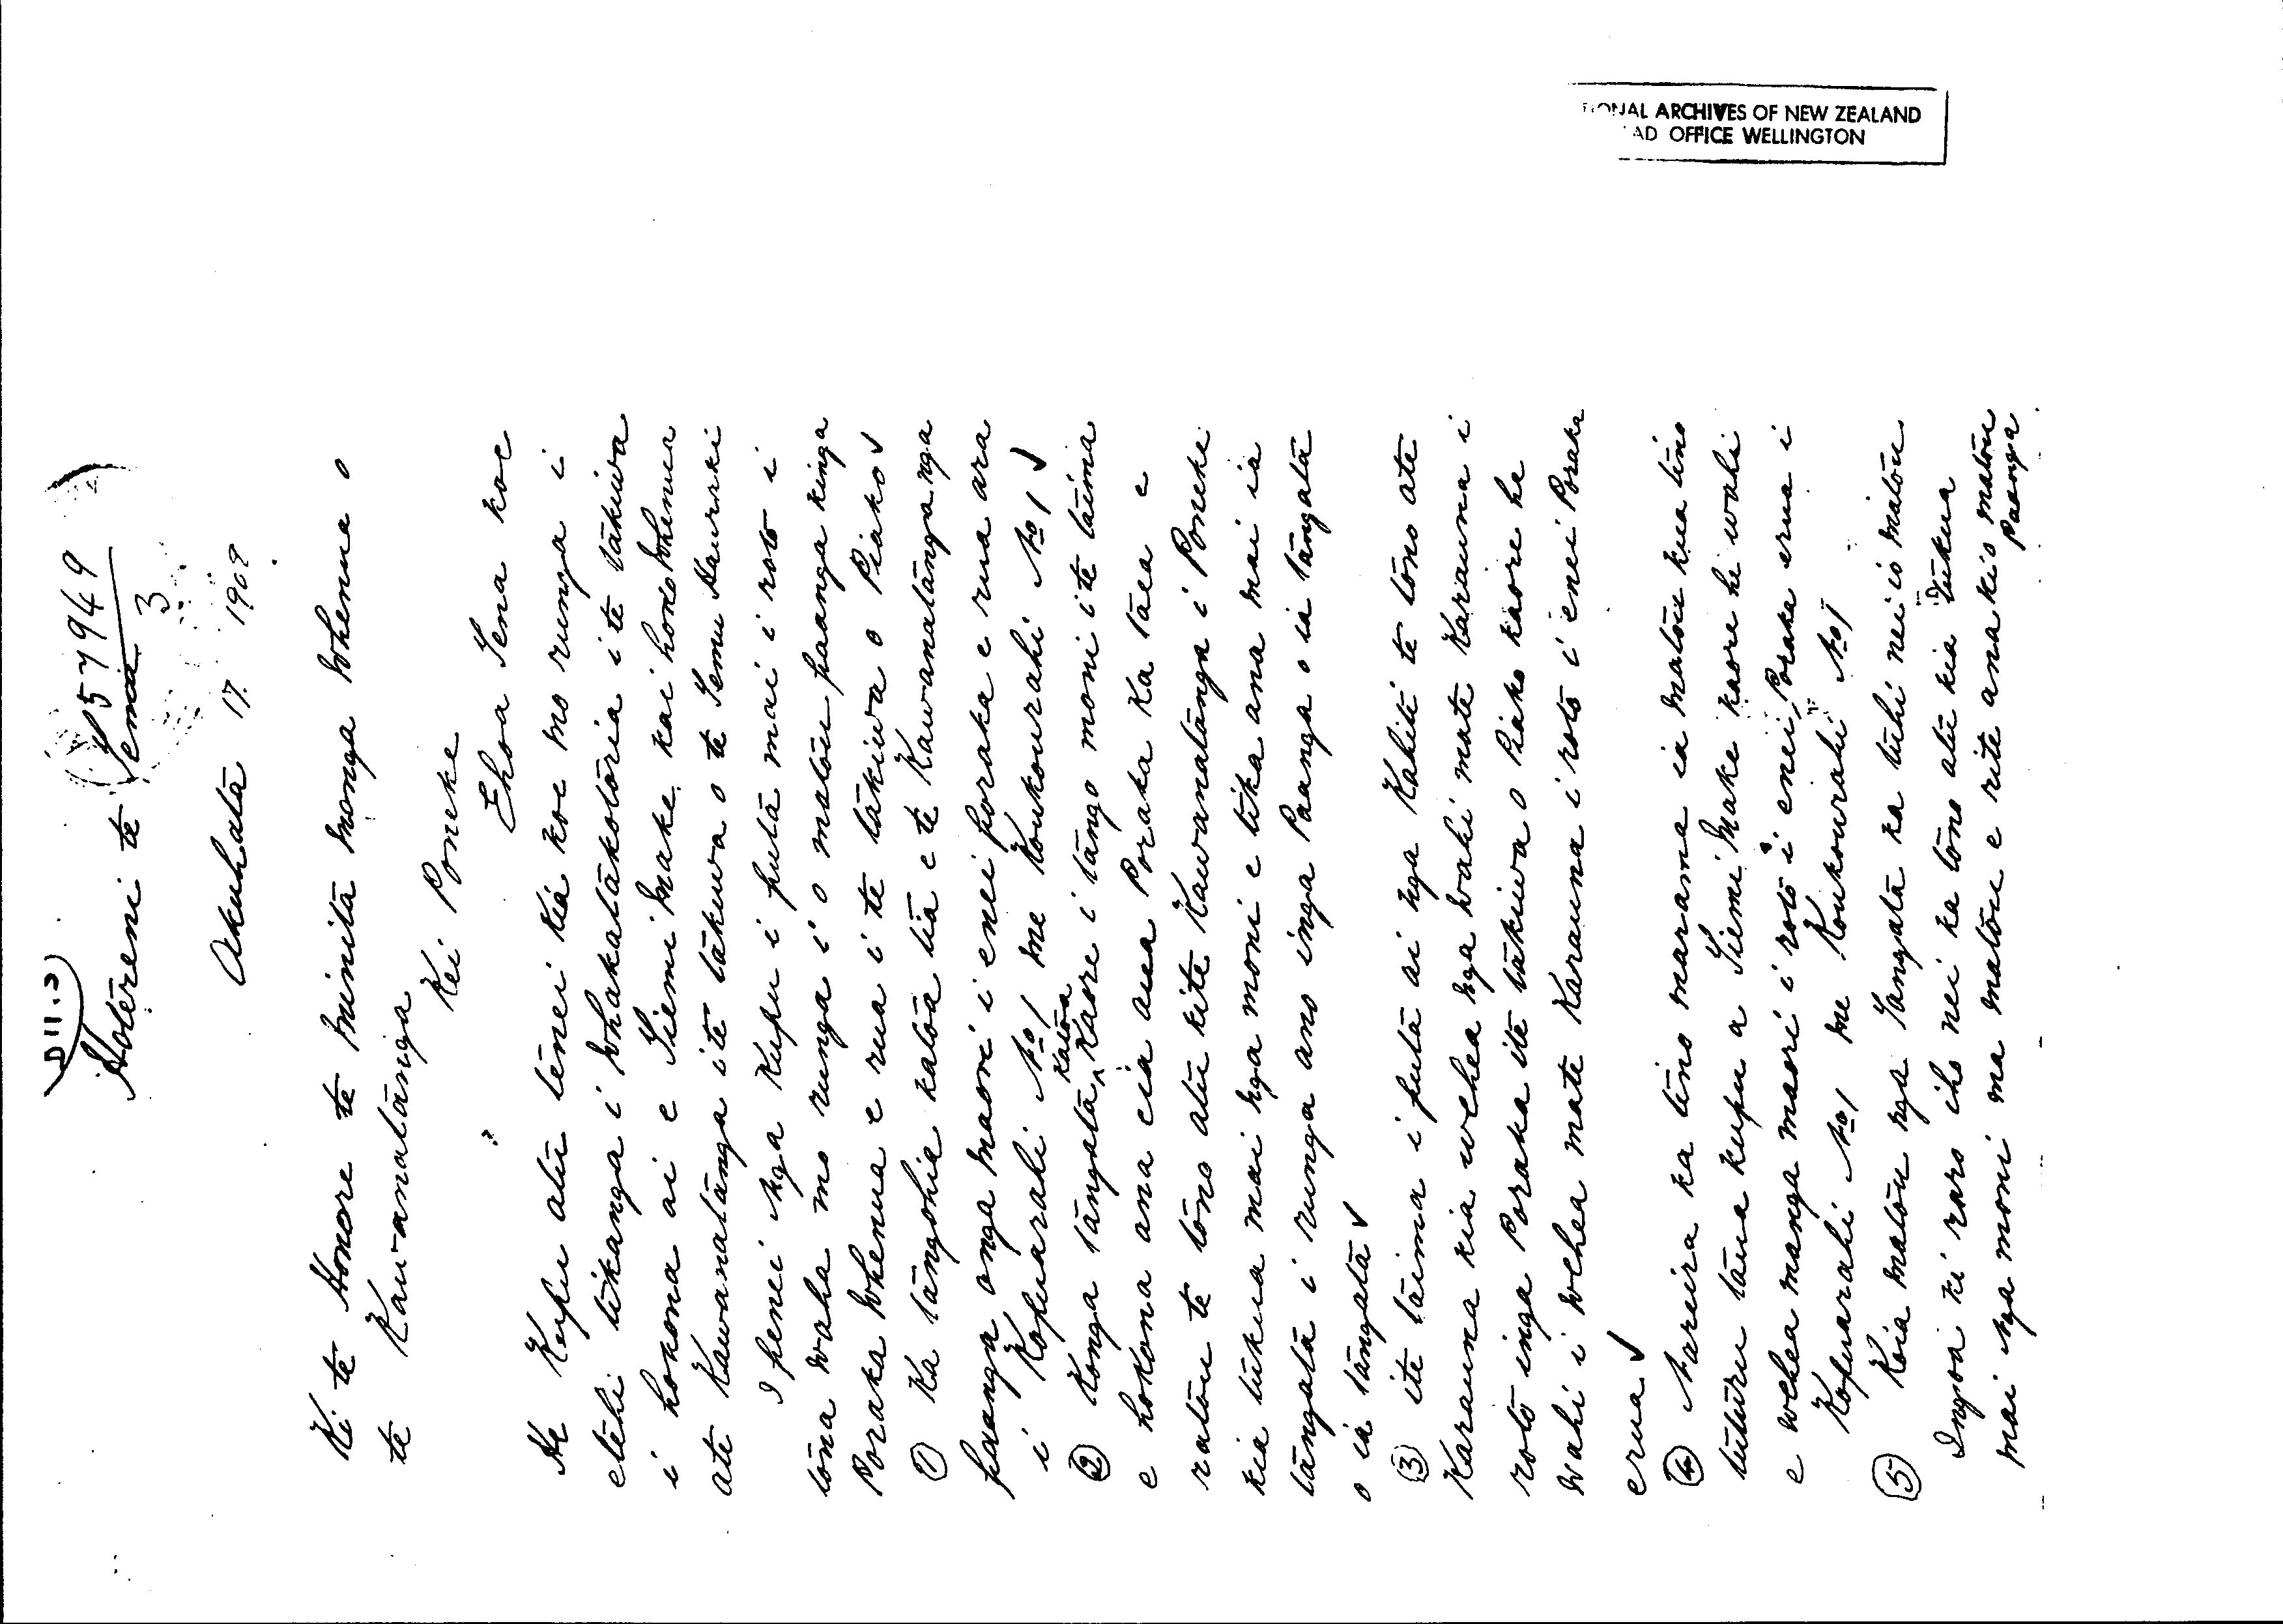 D11.3
Hotereni te Tema
L 57949
3
Akuhata 17. 1908
Ki te Honore te Minita monga Whenua o
te Kawanatanga
Kei Poneke
Ehoa Tena koe
He Kupu atu tenei kia koe mo runga i
etehi tikanga i Whakatakotoria i te takiwa
i hokona ai e Tiemi Make kai hoko Whenua
ate Kawanatanga ite takiwa o te Temu Hauraki
I penei nga Kupu i puta mai i roto i
tona Waha mo runga i o matou paanga kinga
Poraka Whenua e rua i te takiwa o Piako ✓
① Ka tangohia katoa tia e te Kawanatanga nga
paanga onga Maori i enei poraka e rua ara
i Kopuarahi No 1 me Koukourahi No 1 ✓
② Konga tangata katoa Kaore i tango moni i te taima
e hokona ana eia aua Poraka Ka taea e
ratou te tono atu kite Kawanatanga i Poneke
kia tukua mai nga moni e tika ana mai ia
tangata i runga ano inga Paanga o ia tangata
o ia tangata ✓
③ ite taima i puta ai nga Kahiti te tono ate
Karauna kia wehea nga Wahi mate Karauna i
roto inga Poraka ite takiwa o Piako kaore he
Wahi i Wehea mate Karauna i roto i enei Poraka
erua ✓
④ Nareira ka tino marama ia matou kua tino
tuturu taua kupu a Tiemi Make kaore he wahi
e wehea manga maori i roto i enei Poraka erua i
Kopuarahi No 1 me Koukourahi No 1
⑤ Koia matou nga Tangata ka tuhi nei io matou
Ingoa ki raro iho nei ka tono atu kia Tukua
mai nga moni ma matou e rite ana kio matou
Paanga
NATIONAL ARCHIVES OF NEW ZEALAND
HEAD OFFICE WELLINGTON